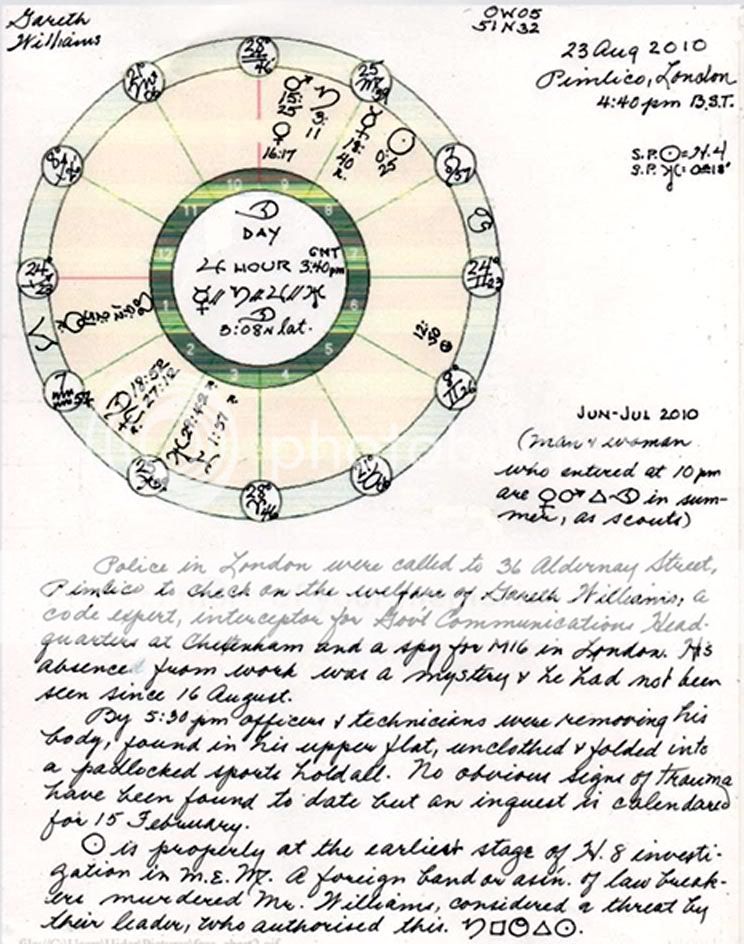 Gareth
Williams
0W05
51N32
23 Aug 2010
Pimlico, London
4:40 pm B.S.T.
28° ♎ 46
25 ♍ 39
24° ♊ 23
8° ♊ 26
28° ♈ 46
24° ♐ 23
7 ♒ 57
♂ 15:25
♄ 3:11
♀ 16:17
☿ 18:40 R.
☉
10
9
8
11
7
12
1
6
2
5
3
4
DAY
GMT
♃ HOUR 3:40pm
☿ // ♄ // ♃ // ♅
3:08N lat.
18:52
27:12
29:42 R.
1:57 R.
photo
JUN-JUL 2010
(man & woman
who entered at 10 pm
are ♀♂△☽ in sum-
mer, as scouts)
Police in London were called to 36 Aldernay Street,
Pimlico to check on the welfare of Gareth Williams, a
code expert, interceptor for Gov't Communications Head-
quarters at Cheltenham and a spy for M16 in London. His
absence from work was a mystery & he had not been
seen since 16 August.
By 5:30 pm officers & technicians were removing his
body, found in his upper flat, unclothed & folded into
a padlocked sports holdall. No obvious signs of trauma
have been found to date but an inquest is calendared
for 15 February.
☉ is properly at the earliest stage of H. 8 investi-
gation in M.E. ♍. A foreign band or asin. of law break-
ers murdered Mr. Williams, considered a threat by
their leader, who authorised this. ♄□♇△☉.